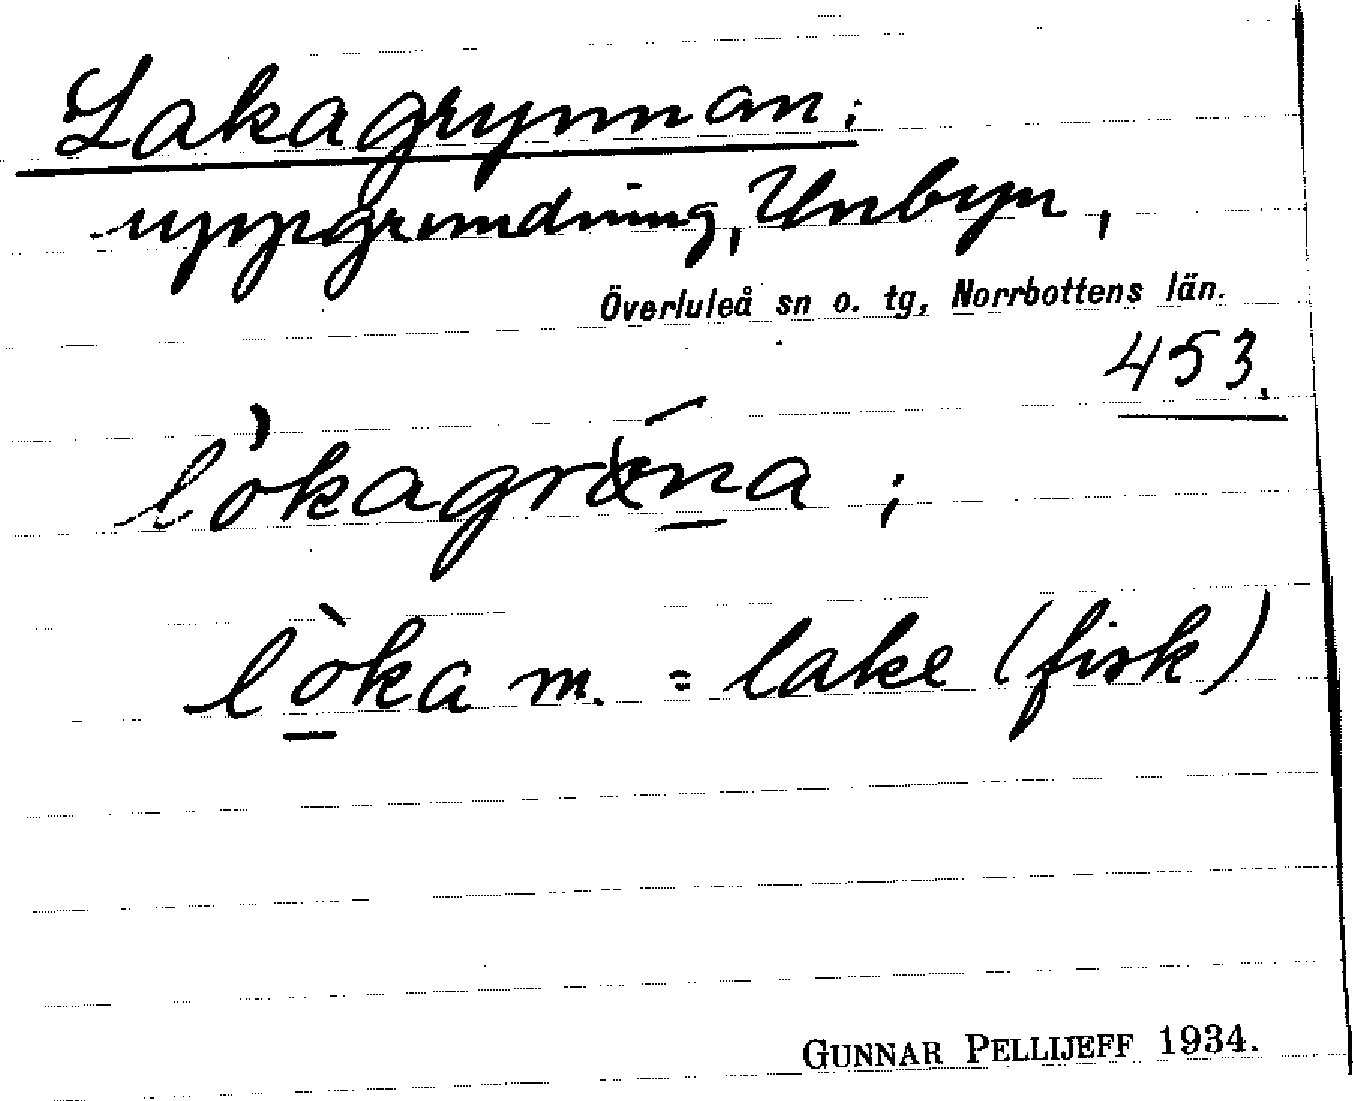 Lakagrynnan:
uppgrundning, Unbyn,
Överluleå sn o. tg, Norrbottens län.
453.
lòka m. = lake (fisk)
GUNNAR PELLIJEFF 1934.